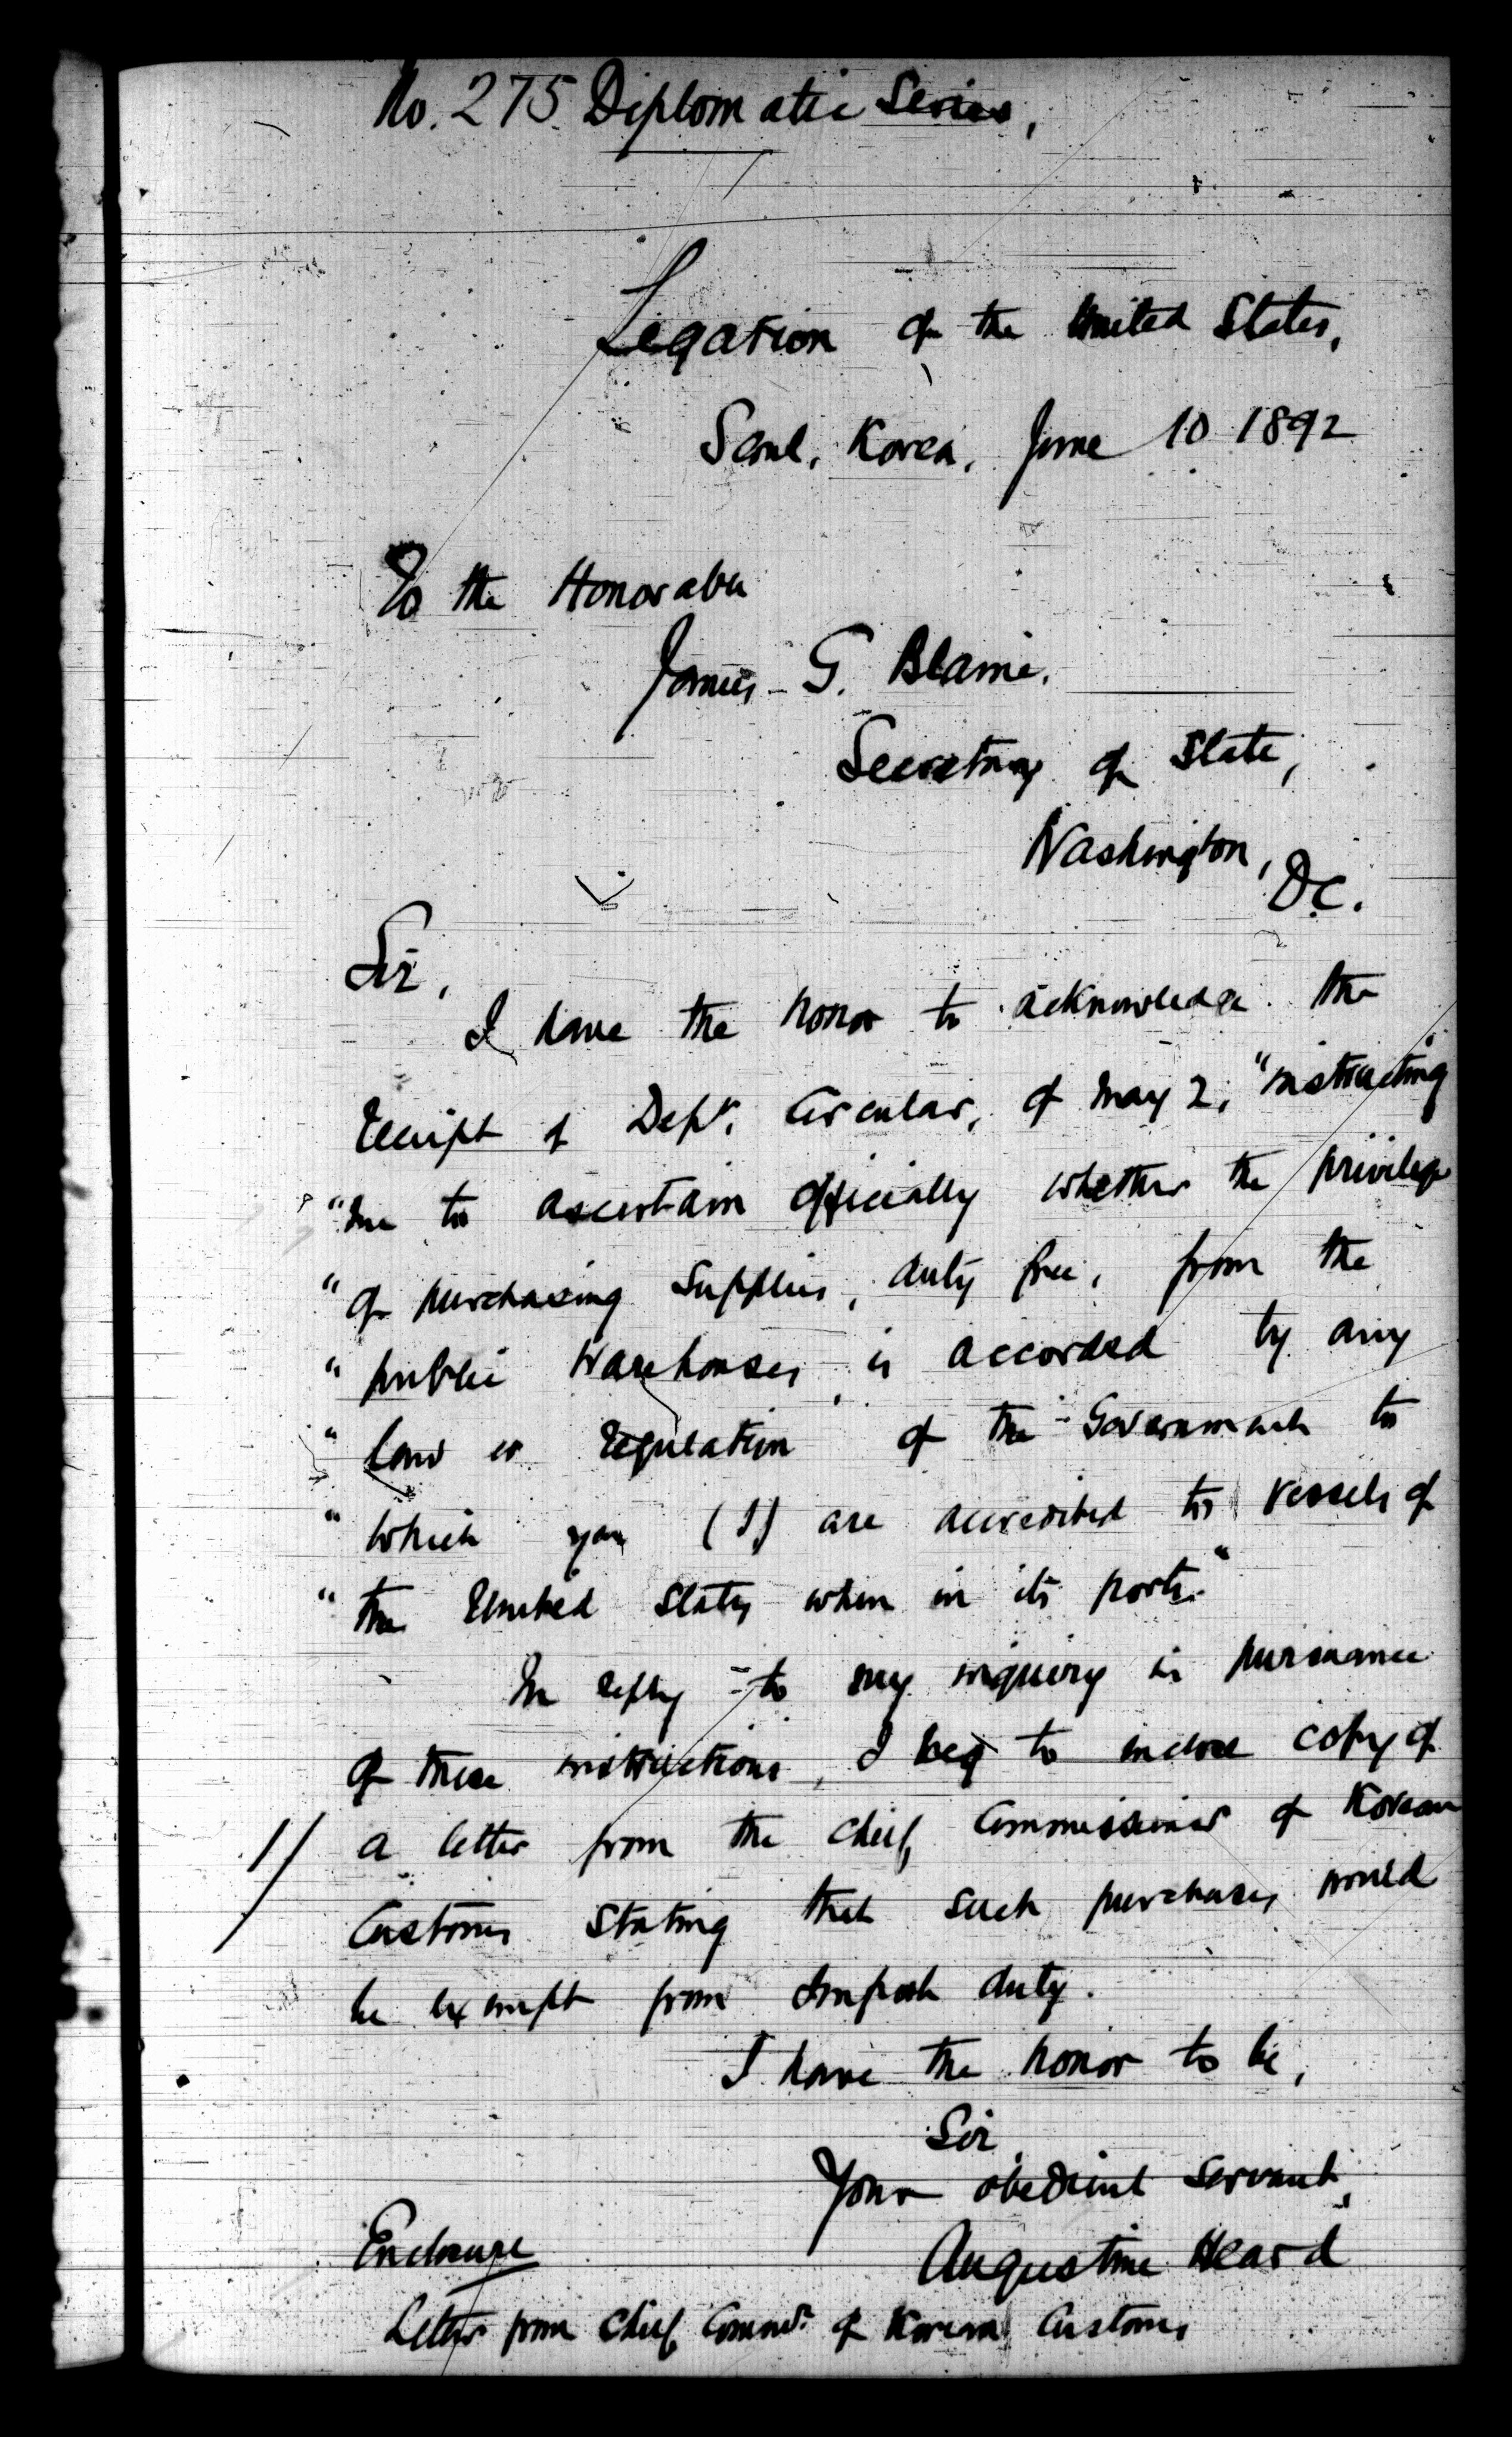 No. 275 Diplomatic Series,
Legation of the United States,
Seoul, Korea, June 10 1892
To the Honorable
James G. Blaine,
Secretary of State,
Washington,
D.C.
Sir,
I have the honor to acknowledge the
receipt of Dept. Circular, of May 2, "instructing
"me to ascertain officially whether the privilege
"of purchasing supplies, duty free, from the
"public warehouses, is accorded by any
"law or regulation of the Government to
"which you (I) are accredited to vessels of
"the United States when in its ports."
In reply to my inquiry in pursuance
of these instructions, I beg to enclose copy of
1/ a letter from the Chief Commissioner of Korean
Customs stating that such purchases would
be exempt from Import duty.
I have the honor to be,
Sir,
Your obedient servant,
Augustine Heard
Enclosure
Letter from Chief Commr. of Korean Customs